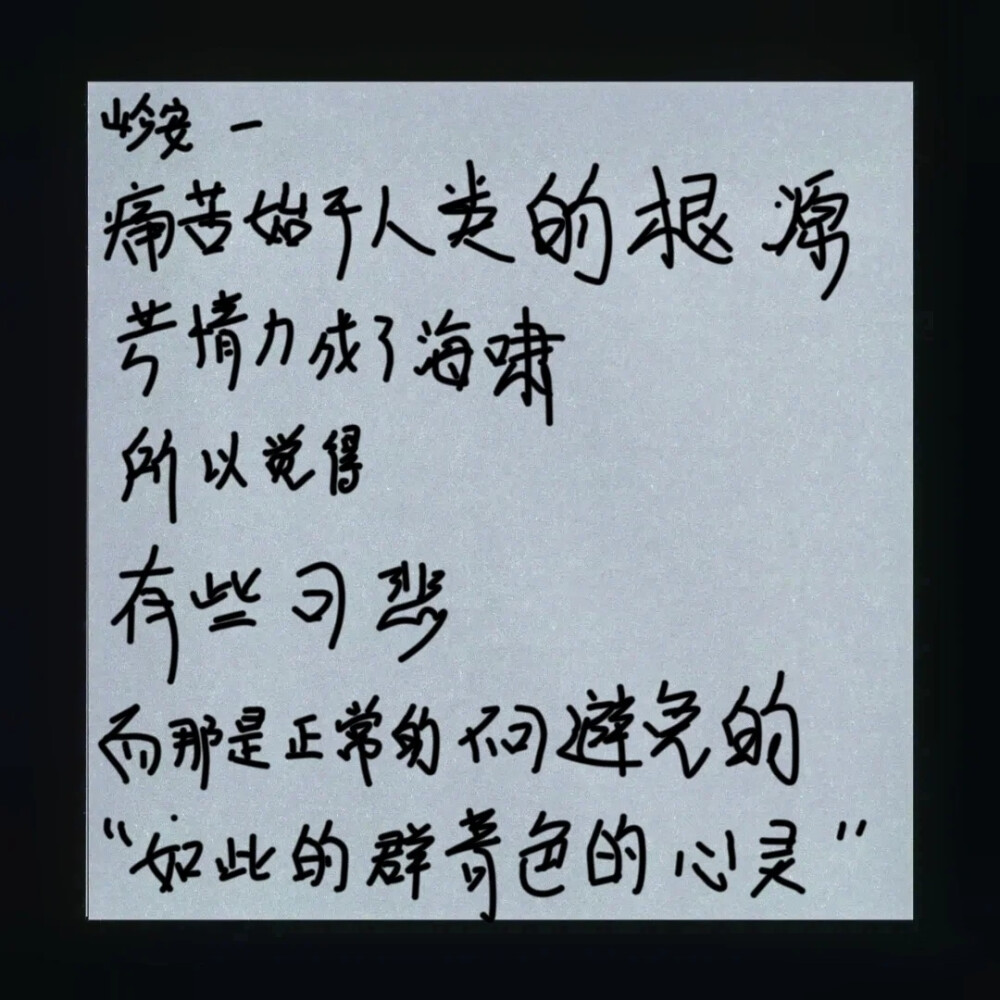 安 一
痛苦始于人类的根源
苦情力成了海啸
所以觉得
有些可悲
而那是正常的不可避免的
“如此的群青色的心灵”